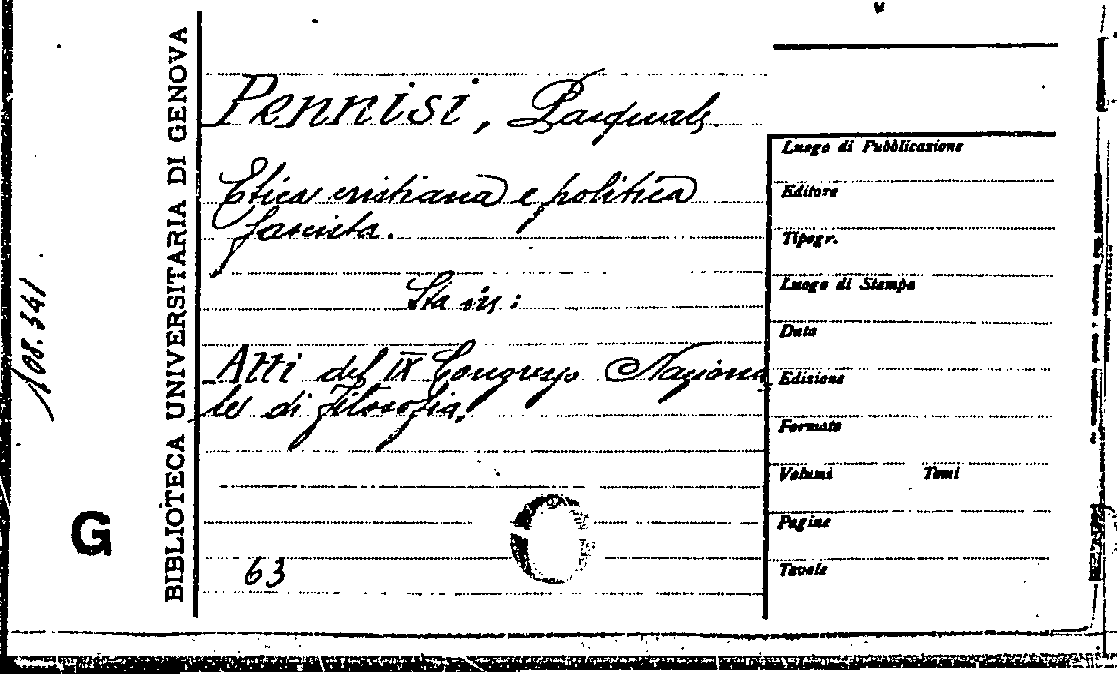 BIBLIOTECA UNIVERSITARIA DI GENOVA
108.341
G
Pennisi, Pasquale
Etica cristiana e politica
fascista.
Sta in:
Atti del IX Congresso Naziona
le di filosofia.
63
Luogo di Pubblicazione
Editore
Tipogr.
Luogo di Stampa
Data
Edizione
Formato
Volumi Tomi
Pagine
Tavole